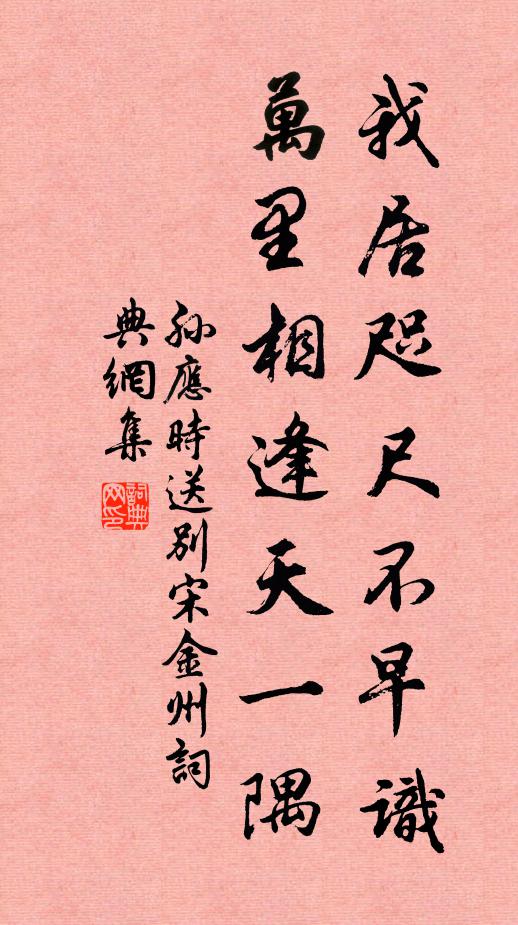 我居咫尺不早識
萬里相逢天一隅
孫應時送別宋金州詞
典網集
詞典
网印